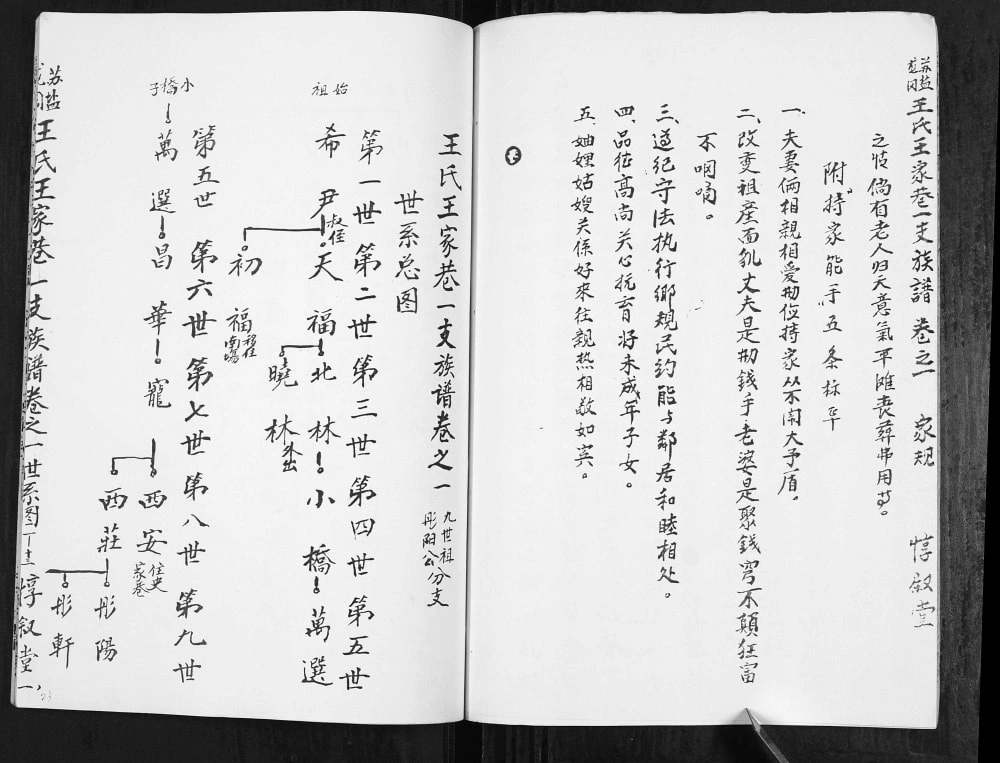 苏盐龙冈王氏王家巷一支族譜 卷之一 家規 惇叙堂
之忮倘有老人归天意氣平摊丧葬弗用节。
附：持家能手五条标准
一、夫妻俩相親相爱勤俭持家从不闹大矛盾。
二、改变祖產面皃丈夫是抓錢手老婆是聚錢窍不顛狂富
不啯噥。
三、遵纪守法执行鄉規民约能与鄰居和睦相处。
四、品德高尚关心抚育好未成年子女。
五、妯娌姑嫂关係好來往親热相敬如宾。
王氏王家巷一支族谱卷之一 九世祖彤阳公分支
世系总图
第一世 第二世 第三世 第四世 第五世
始祖
希尹 叔侄 天福 北林 小橋 萬選
初福 移住南場 曉林 外出
第五世 第六世 第七世 第八世 第九世
小橋子
萬選 昌華 寵 西安 住史家巷
西莊 彤陽
彤軒
苏盐龙冈王氏王家巷一支族譜卷之一世系图 惇叙堂